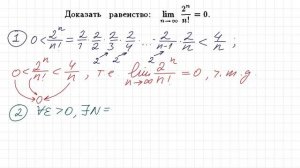 Доказать равенство: lim n→∞ 2ⁿ/n! = 0.
① 0 < 2ⁿ/n! = 2/1 · 2/2 · 2/3 · 2/4 ... 2/(n-1) · 2/n < 4/n ;
0 < 2ⁿ/n! < 4/n , т.е lim n→∞ 2ⁿ/n! = 0, ч.т.д.
0
② ∀ε>0, ∃N =